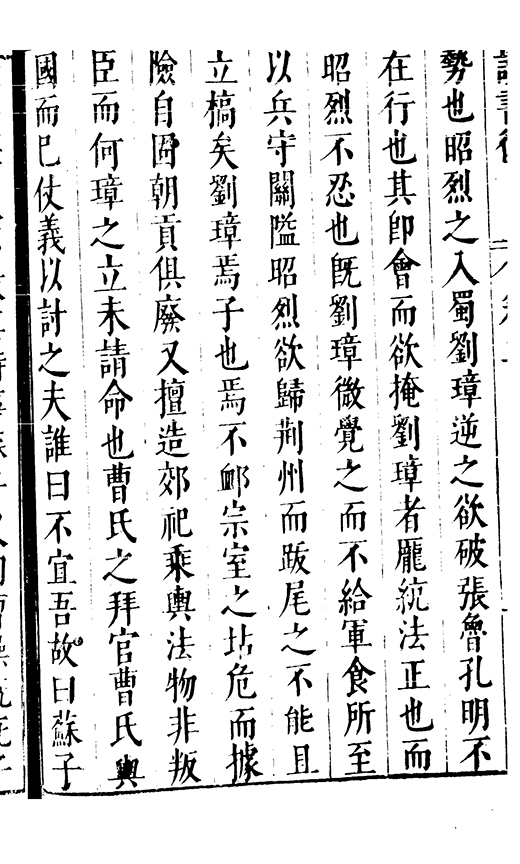 勢也昭烈之入蜀劉璋逆之欲破張魯孔明不
在行也其卽會而欲掩劉璋者龐統法正也而
昭烈不忍也旣劉璋微覺之而不給軍食所至
以兵守關隘昭烈欲歸荆州而跋尾之不能且
立槁矣劉璋焉子也焉不䘏宗室之坫危而據
險自固朝貢俱廢又擅造郊祀乘輿法物非叛
臣而何璋之立未請命也曹氏之拜官曹氏與
國而已仗義以討之夫誰曰不宜吾故曰蘇子